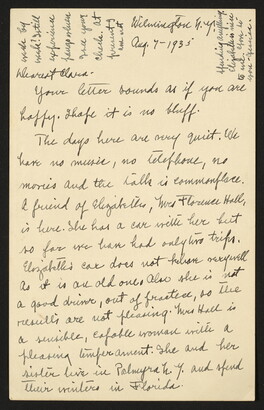 Wilmington N.Y.
Aug. 7-1935
Dearest Clara-
Your letter sounds as if you are
happy. I hope it is no bluff.
The days here are very quiet. We
have no music, no telephone, no
movies and the talk is commonplace.
A friend of Elizabeth's, Mrs Florence Hall,
is here. She has a car with her but
so far we have had only two trips.
Elizabeth's car does not behave
as it is an old one. Also she is not
a good driver, out of practice, so the
results are not pleasing. Mrs Hall is
a sensible, capable woman with a
pleasing temperament. She and her
sister live in Palmyra N.Y. and spend
their winters in Florida.